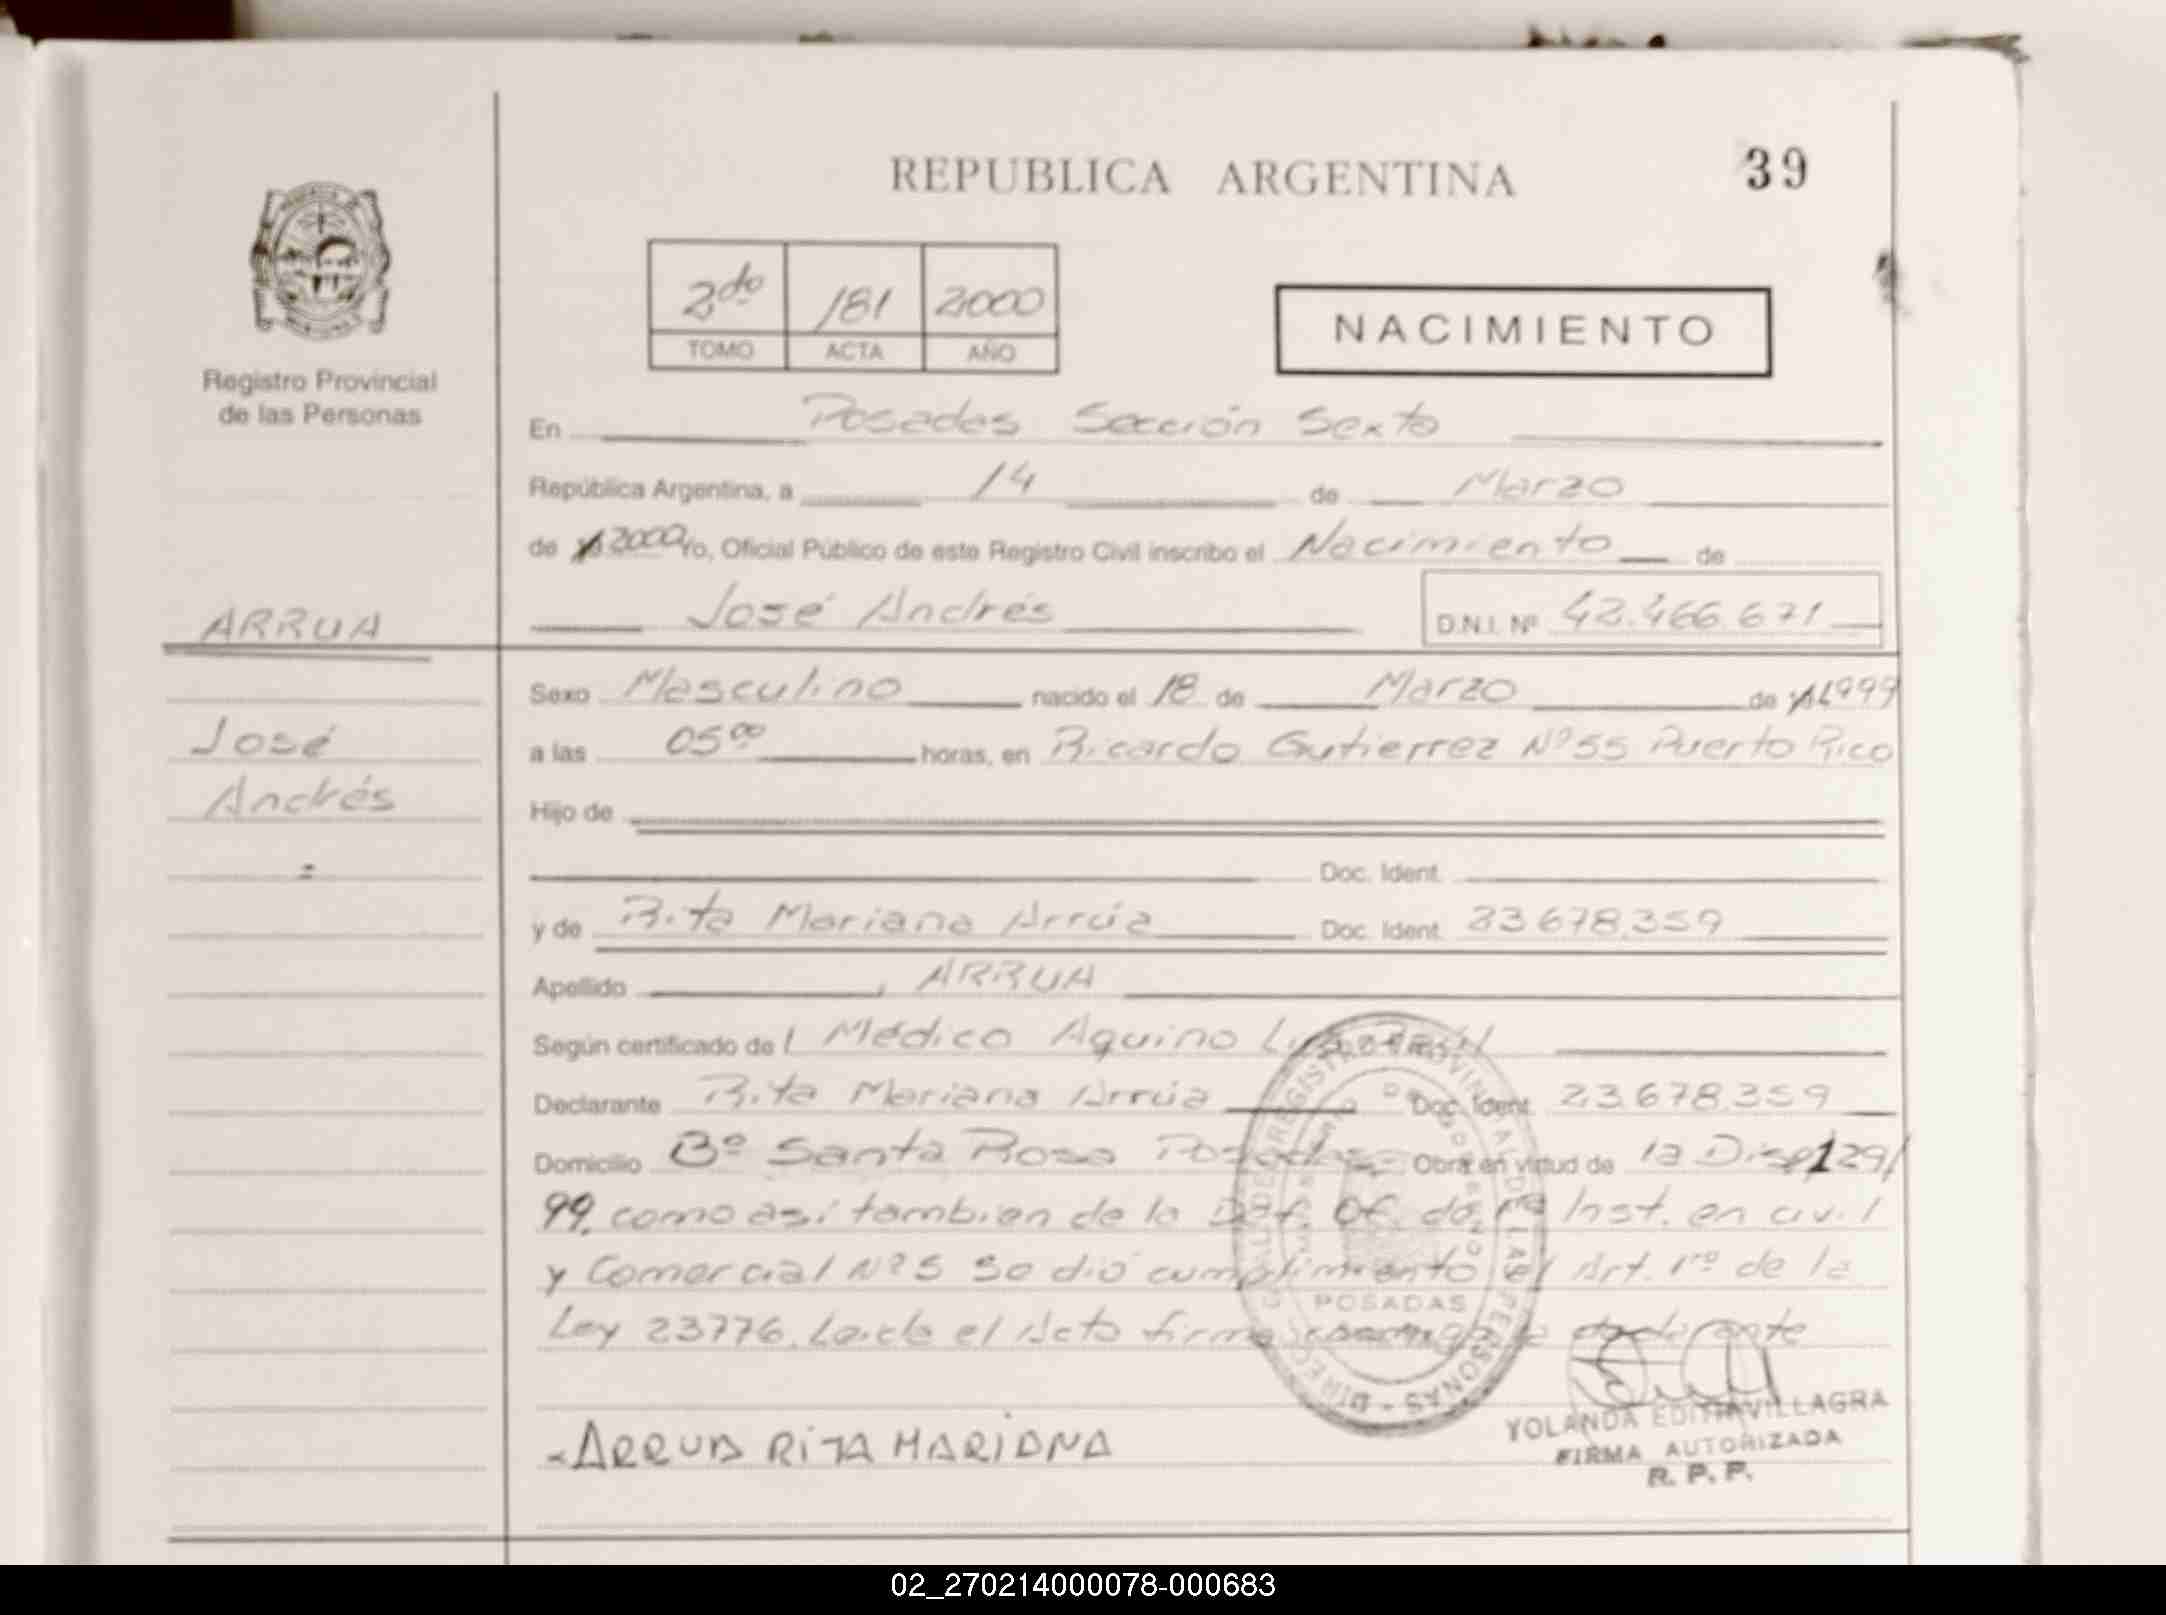 REPUBLICA ARGENTINA
39
2do 181 2000
TOMO ACTA AÑO
NACIMIENTO
Registro Provincial
de las Personas
En Posadas Sección Sexta
República Argentina, a 14 de Marzo
de 2000 Yo, Oficial Público de este Registro Civil inscribo el Nacimiento de
José Andrés D.N.I. Nº 42.466.671
ARRUA
José
Andrés
Sexo Masculino nacido el 18 de Marzo de 1999
a las 05 00 horas, en Ricardo Gutierrez Nº 55 Puerto Rico
Hijo de
Doc. Ident.
y de Rita Mariana Arrúa Doc. Ident. 23678.359
Apellido ARRUA
Según certificado del Médico Aquino Luis
Declarante Rita Mariana Arrúa Doc. Ident. 23.678.359
Domicilio Bº Santa Rosa Posadas Obra en virtud de la Disp 1291
99. como asi tambien de la Def. Of. de 1ra Inst. en civil
y Comercial Nº 5 Se dió cumplimiento el Art. 1ro de la
Ley 23776. Leida el Acta firma conmigo la declarante
DIRECCION GRAL DEL REGISTRO PROVINCIAL DE LAS PERSONAS
POSADAS
ARRUA RITA MARIANA
YOLANDA EDITH VILLAGRA
FIRMA AUTORIZADA
R. P. P.
02_270214000078-000683